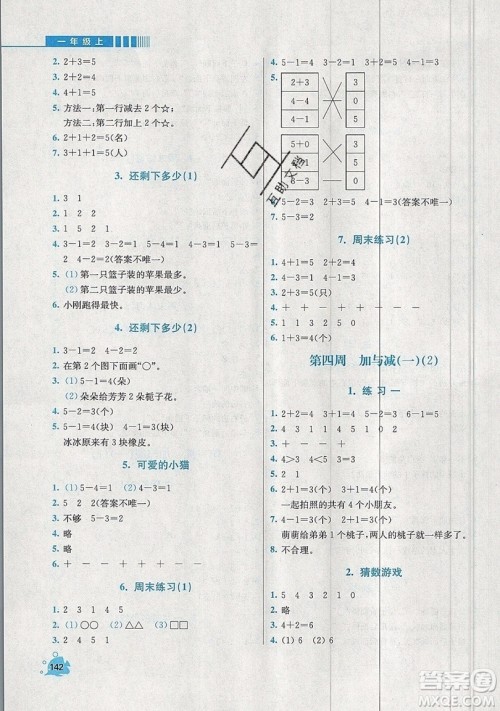 一年级上
2. 2+3=5
3. 2+2=4
5. 方法一：第一行减去2个☆；
方法二：第二行加上2个☆。
6. 1+2+2=5(名)
7. 1+1+3=5(人)
3. 还剩下多少(1)
1. 3 1
2. 1 2 2
3. 1 5 2 1
4. 3-1=2 5-2=3 5-4=1 4-
2=2(答案不唯一)
5. (1) 第一只篮子装的苹果最多。
(2) 第二只篮子装的苹果最少。
6. 小刚跑得最快。
4. 还剩下多少(2)
1. 3-1=2 4-3=1
2. 在第2个图下面画“○”。
3. (1) 3+1=4(朵)
(2) 朵朵给芳芳2朵栀子花。
4. 5-2=3
5. 5-1=4(块) 4-1=3(块)
冰冰原来有3块橡皮。
5. 可爱的小猫
1. (1) 5-4=1 (2) 4-3=1
2. 5-3=2(答案不唯一)
3. 不够 5-3=2
4. 略
5. 略
6. + - + + - +
6. 周末练习(1)
1. 2 3 1 4 5
2. (1) ○○ (2) △△ (3) □□
3. 2 4 5 1
142
4. 5-1=4 4-3=1 4-1=3
5.
2+3 3
4-4 5
4-1 0
5-0 3
5
8-3 0
6. 5-2=3 4-1=3(答案不唯一)
7. 5-2=3
7. 周末练习(2)
1. 4+1=5
2. 4-3=1
3. + - + + - +
4. 1 3 2 5 0
第四周 加与减(一)(2)
1. 练习一
1. 2+2=4 3+3=6 5-3=2 6-1=5
2. 4 3 1 1 4 3 4 5 1 0 2
3. + - + - + -
4. > < > = > =
5. 2 1
6. 2+1=3(个) 3+1=4(个)
一起拍照的共有4个小朋友。
7. 2+1=3(个) 4-1=3(个)
萌萌给弟弟1个桃子，两人的桃子就一样多。
8. 不合理。
2. 猜数游戏
1. 2 5 4 3 1 0
2. 略
3. 4+2=6
4. (1) 6 (2) 6
白
互助文档
答案圈
MXQE.COM